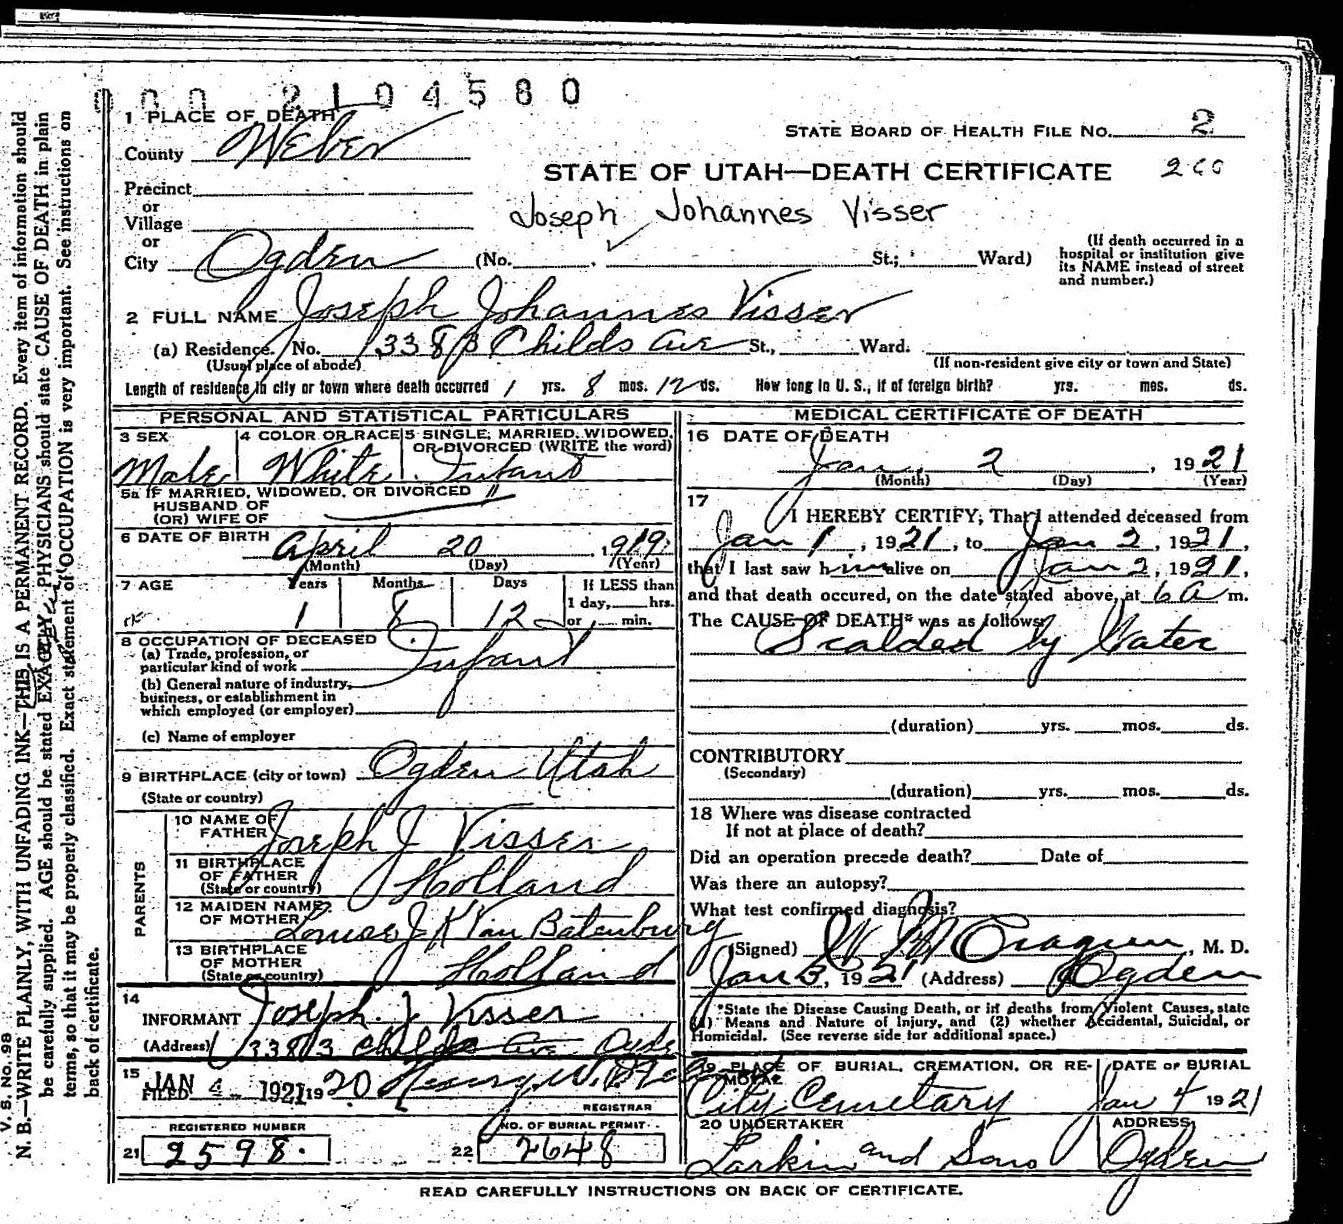 000 2104580
1 PLACE OF DEATH
County Weber
STATE BOARD OF HEALTH FILE NO. 2
STATE OF UTAH—DEATH CERTIFICATE 260
Precinct
or
Village
Joseph Johannes Visser
or
City Ogden (No. St.; Ward)
(If death occurred in a
hospital or institution give
its NAME instead of street
and number.)
2 FULL NAME Joseph Johannes Visser
(a) Residence. No. 338 Childs Ave St., Ward.
(Usual place of abode) (If non-resident give city or town and State)
Length of residence in city or town where death occurred 1 yrs. 8 mos. 12 ds. How long in U. S., if of foreign birth? yrs. mos. ds.
PERSONAL AND STATISTICAL PARTICULARS
3 SEX 4 COLOR OR RACE 5 SINGLE, MARRIED, WIDOWED,
OR DIVORCED (WRITE the word)
Male White Infant
5a IF MARRIED, WIDOWED, OR DIVORCED
HUSBAND OF
(OR) WIFE OF
6 DATE OF BIRTH April 20, 1919
(Month) (Day) (Year)
7 AGE Years Months Days If LESS than
1 day, hrs.
1 8 12 or min.
8 OCCUPATION OF DECEASED
(a) Trade, profession, or
particular kind of work Infant
(b) General nature of industry,
business, or establishment in
which employed (or employer)
(c) Name of employer
9 BIRTHPLACE (city or town) Ogden Utah
(State or country)
PARENTS
10 NAME OF
FATHER Joseph J Visser
11 BIRTHPLACE
OF FATHER
(State or country) Holland
12 MAIDEN NAME
OF MOTHER Louise J K Van Batenburg
13 BIRTHPLACE
OF MOTHER
(State or country) Holland
14
INFORMANT Joseph J. Visser
(Address) 3383 Childs Ave Ogde
15
FILED JAN 4 1921 1920 Henry W.
REGISTRAR
REGISTERED NUMBER NO. OF BURIAL PERMIT
21 2598. 22 2648
MEDICAL CERTIFICATE OF DEATH
16 DATE OF DEATH
Jan. 2, 1921
(Month) (Day) (Year)
17
I HEREBY CERTIFY, That I attended deceased from
Jan 1, 1921, to Jan 2, 1921,
that I last saw him alive on Jan 2, 1921,
and that death occured, on the date stated above, at 6 a m.
The CAUSE OF DEATH* was as follows:
Scalded by Water
(duration) yrs. mos. ds.
CONTRIBUTORY
(Secondary)
(duration) yrs. mos. ds.
18 Where was disease contracted
If not at place of death?
Did an operation precede death? Date of
Was there an autopsy?
What test confirmed diagnosis?
(Signed) Cragun, M. D.
Jan 3, 1921 (Address) Ogden
*State the Disease Causing Death, or if deaths from Violent Causes, state
(1) Means and Nature of Injury, and (2) whether Accidental, Suicidal, or
Homicidal. (See reverse side for additional space.)
19 PLACE OF BURIAL, CREMATION, OR RE- DATE OF BURIAL
MOVAL
City Cemetary Jan 4 1921
20 UNDERTAKER ADDRESS
Larkin and Sons Ogden
READ CAREFULLY INSTRUCTIONS ON BACK OF CERTIFICATE.
V. S. No. 98
N. B.—WRITE PLAINLY, WITH UNFADING INK—THIS IS A PERMANENT RECORD. Every item of information should
be carefully supplied. AGE should be stated EXACTLY. PHYSICIANS should state CAUSE OF DEATH in plain
terms, so that it may be properly classified. Exact statement of OCCUPATION is very important. See instructions on
back of certificate.